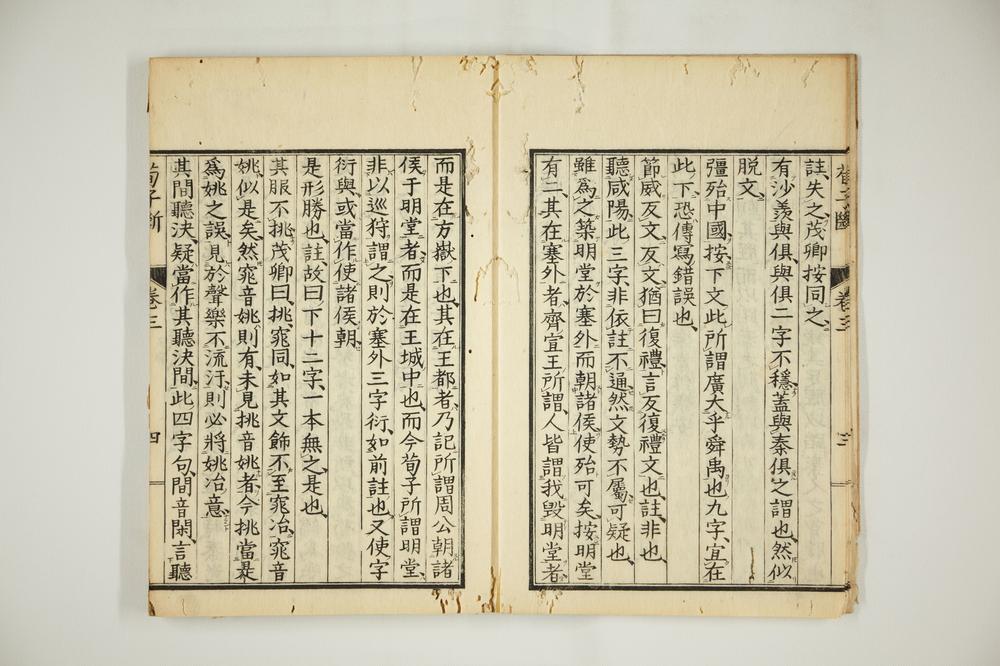 註失之、茂卿按同之、
有沙羨與俱、與俱二字不穩、蓋與秦俱之謂也、然似
脱文、
彊殆中國、按下文此所謂廣大乎舜禹也九字、宜在
此下、恐傳寫錯誤也、
節威反文、反文、猶曰復禮、言反復禮文也、註非也、
聽咸陽、此三字非依註不通、然文勢不屬、可疑也、
雖爲之築明堂於塞外而朝諸侯、使殆可矣、按明堂
有二、其在塞外者、齊宣王所謂人皆謂我毀明堂者、
而是在方嶽下也、其在王都者、乃記所謂周公朝諸
侯于明堂者、而是在王城中也、而今荀子所謂明堂、
非以巡狩謂之、則於塞外三字衍、如前註也、又使字
衍與、或當作使諸侯朝、
是形勝也、註、故曰下十二字、一本無之、是也、
其服不挑、茂卿曰、挑、窕同、如其文飾不至窕冶、窕音
姚、似是矣、然窕音姚則有、未見挑音姚者、今挑當是
爲姚之誤、見於聲樂不流汙、則必將姚冶意、
其間聽決、疑當作其聽決間、此四字句、間音閑、言聽
卷三
三
荀子斷
卷三
四